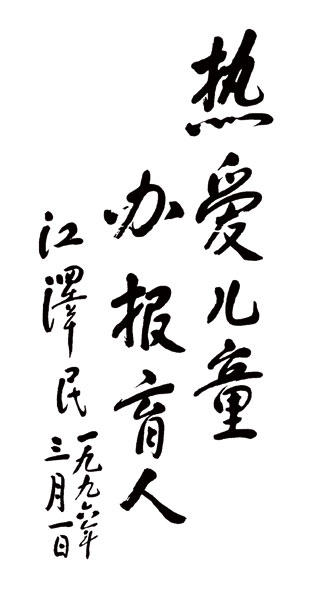 热爱儿童
办报育人
江泽民
一九九六年
三月一日